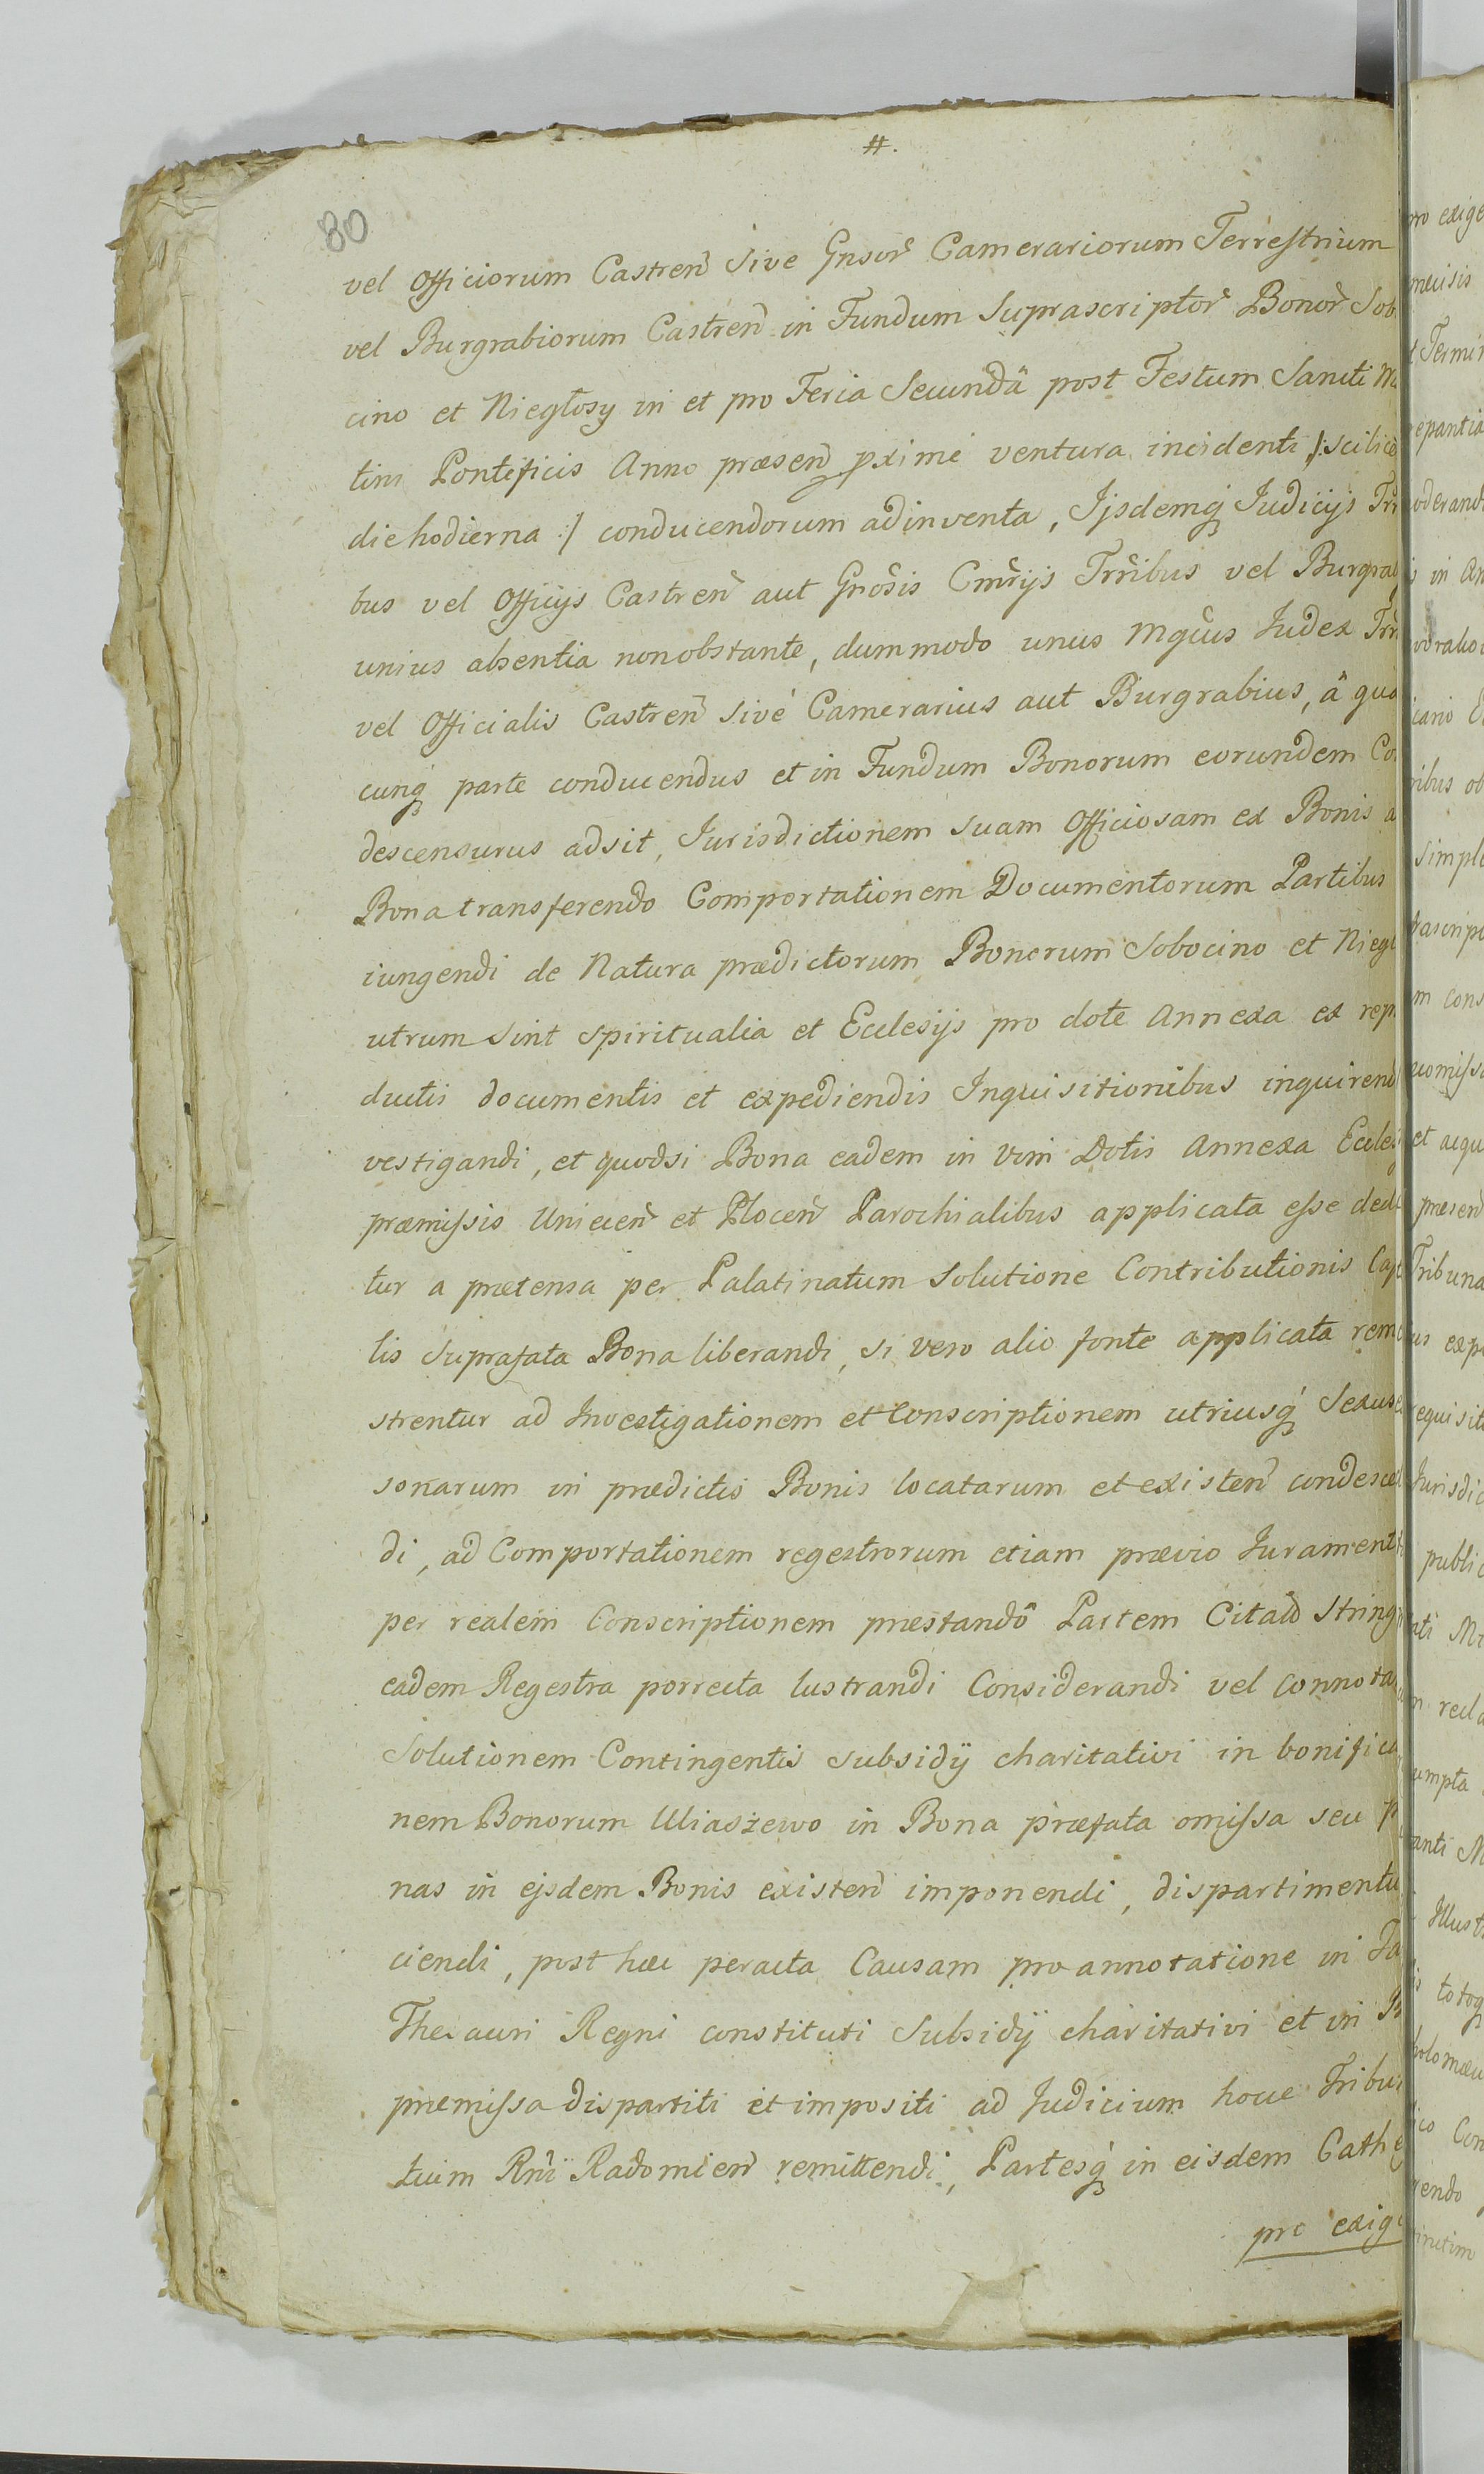 #.
80
vel Officiorum Castren̄ sive Gnsor̄ Camerariorum Terrestrium
vel Burgrabiorum Castren̄ in Fundum Suprascriptor̄ Bonor̄ Sob
cino et Niegłosy in et pro Feria Secundâ post Festum Sancti Ma
tini Pontificis Anno præsen̄ pximè ventura incidenti /: scilicè
die hodierna :/ conducendorum adinventa, Ijsdemq́ Iudicijs Trr
bus vel Officijs Castren̄ aut Gnōsis Cmr̄ijs Trr̄ibus vel Burgrab
unius absentia nonobstante, dummodo unus Mgc̄us Iudex Trr
vel Officialis Castren̄ sivé Camerarius aut Burgrabius, â quo
cunq́ parte conducendus et in Fundum Bonorum eorundem Co
descensurus adsit, Iurisdictionem suam Officiosam ex Bonis a
Bona transferendo Comportationem Documentorum Partibus
iungendi de Natura prædictorum Bonorum Sobocino et Niegł
utrum sint spiritualia et Ecclesijs pro dote annexa ex rep
ductis documentis et expediendis Inquisitionibus inquirend
vestigandi, et quodsi Bona eadem in vim Dotis annexa Eccles
præmissis Uniecen̄ et Plocen̄ Parochialibus applicata esse dedu
tur a prætensa per Palatinatum solutione Contributionis Capi
lis suprafata Bona liberandi, si vero alio fonte applicata remo
strentur ad Investigationem et Conscriptionem utriusq́ Sexus
sonarum in prædictis Bonis locatarum et existen̄ condescen
di, ad Comportationem regestrorum etiam prævio Iurament
per realem Conscriptionem præstandô Partem Citatā String
eadem Regestra porrecta lustrandi Considerandi vel connota
Solutionem Contingentis subsidÿ charitativi in bonifica
nem Bonorum Uliaszewo in Bona præfata omissa seu p
nas in ejsdem Bonis existen̄ imponendi, dispartimentu
ciendi, post hæc peracta Causam pro annotatione in Ta
Thesauri Regni constituti Subsidÿ charitativi et in
præmissa dispartiti et impositi ad Judicium hocce Tribu
tium Rnī Radomien̄ remittendi, Partesq́ in eisdem Cathe
pro exig
pro exige
Termin
epantia
oderand
in An
simple
m cons
et æqu
præsen̄
Tribuna
us exp
equisit
Jurisdic
public
umpta
anti M
Illust
totoq
Con
endo